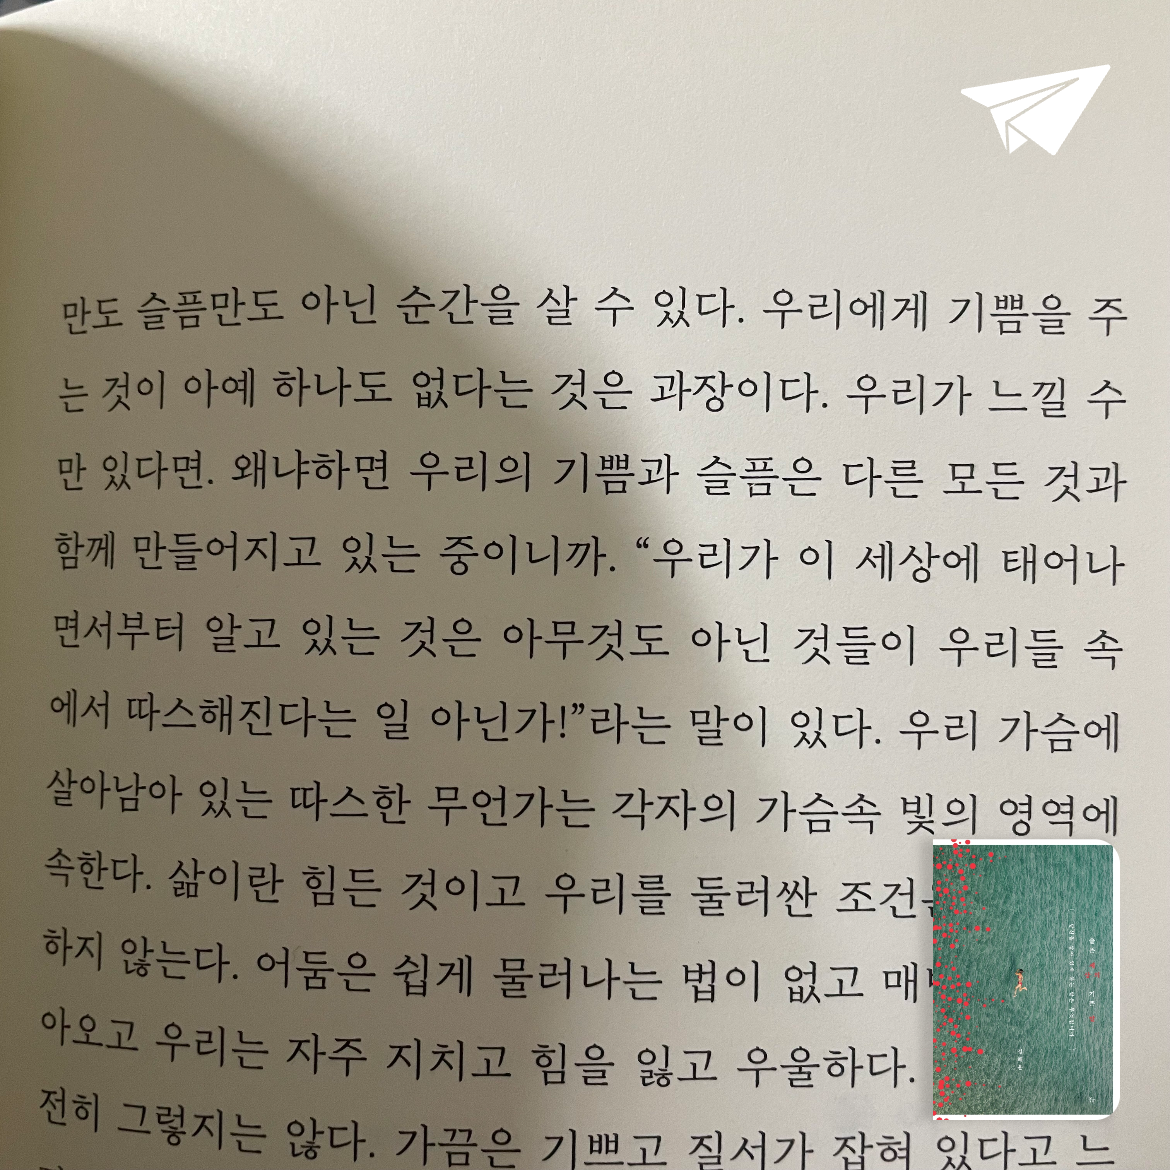 만도 슬픔만도 아닌 순간을 살 수 있다. 우리에게 기쁨을 주
는 것이 아예 하나도 없다는 것은 과장이다. 우리가 느낄 수
만 있다면. 왜냐하면 우리의 기쁨과 슬픔은 다른 모든 것과
함께 만들어지고 있는 중이니까. “우리가 이 세상에 태어나
면서부터 알고 있는 것은 아무것도 아닌 것들이 우리들 속
에서 따스해진다는 일 아닌가!”라는 말이 있다. 우리 가슴에
살아남아 있는 따스한 무언가는 각자의 가슴속 빛의 영역에
속한다. 삶이란 힘든 것이고 우리를 둘러싼
하지 않는다. 어둠은 쉽게 물러나는 법이 없고
아오고 우리는 자주 지치고 힘을 잃고 우울하다.
전히 그렇지는 않다. 가끔은 기쁘고 질서가 잡혀 있다고 느